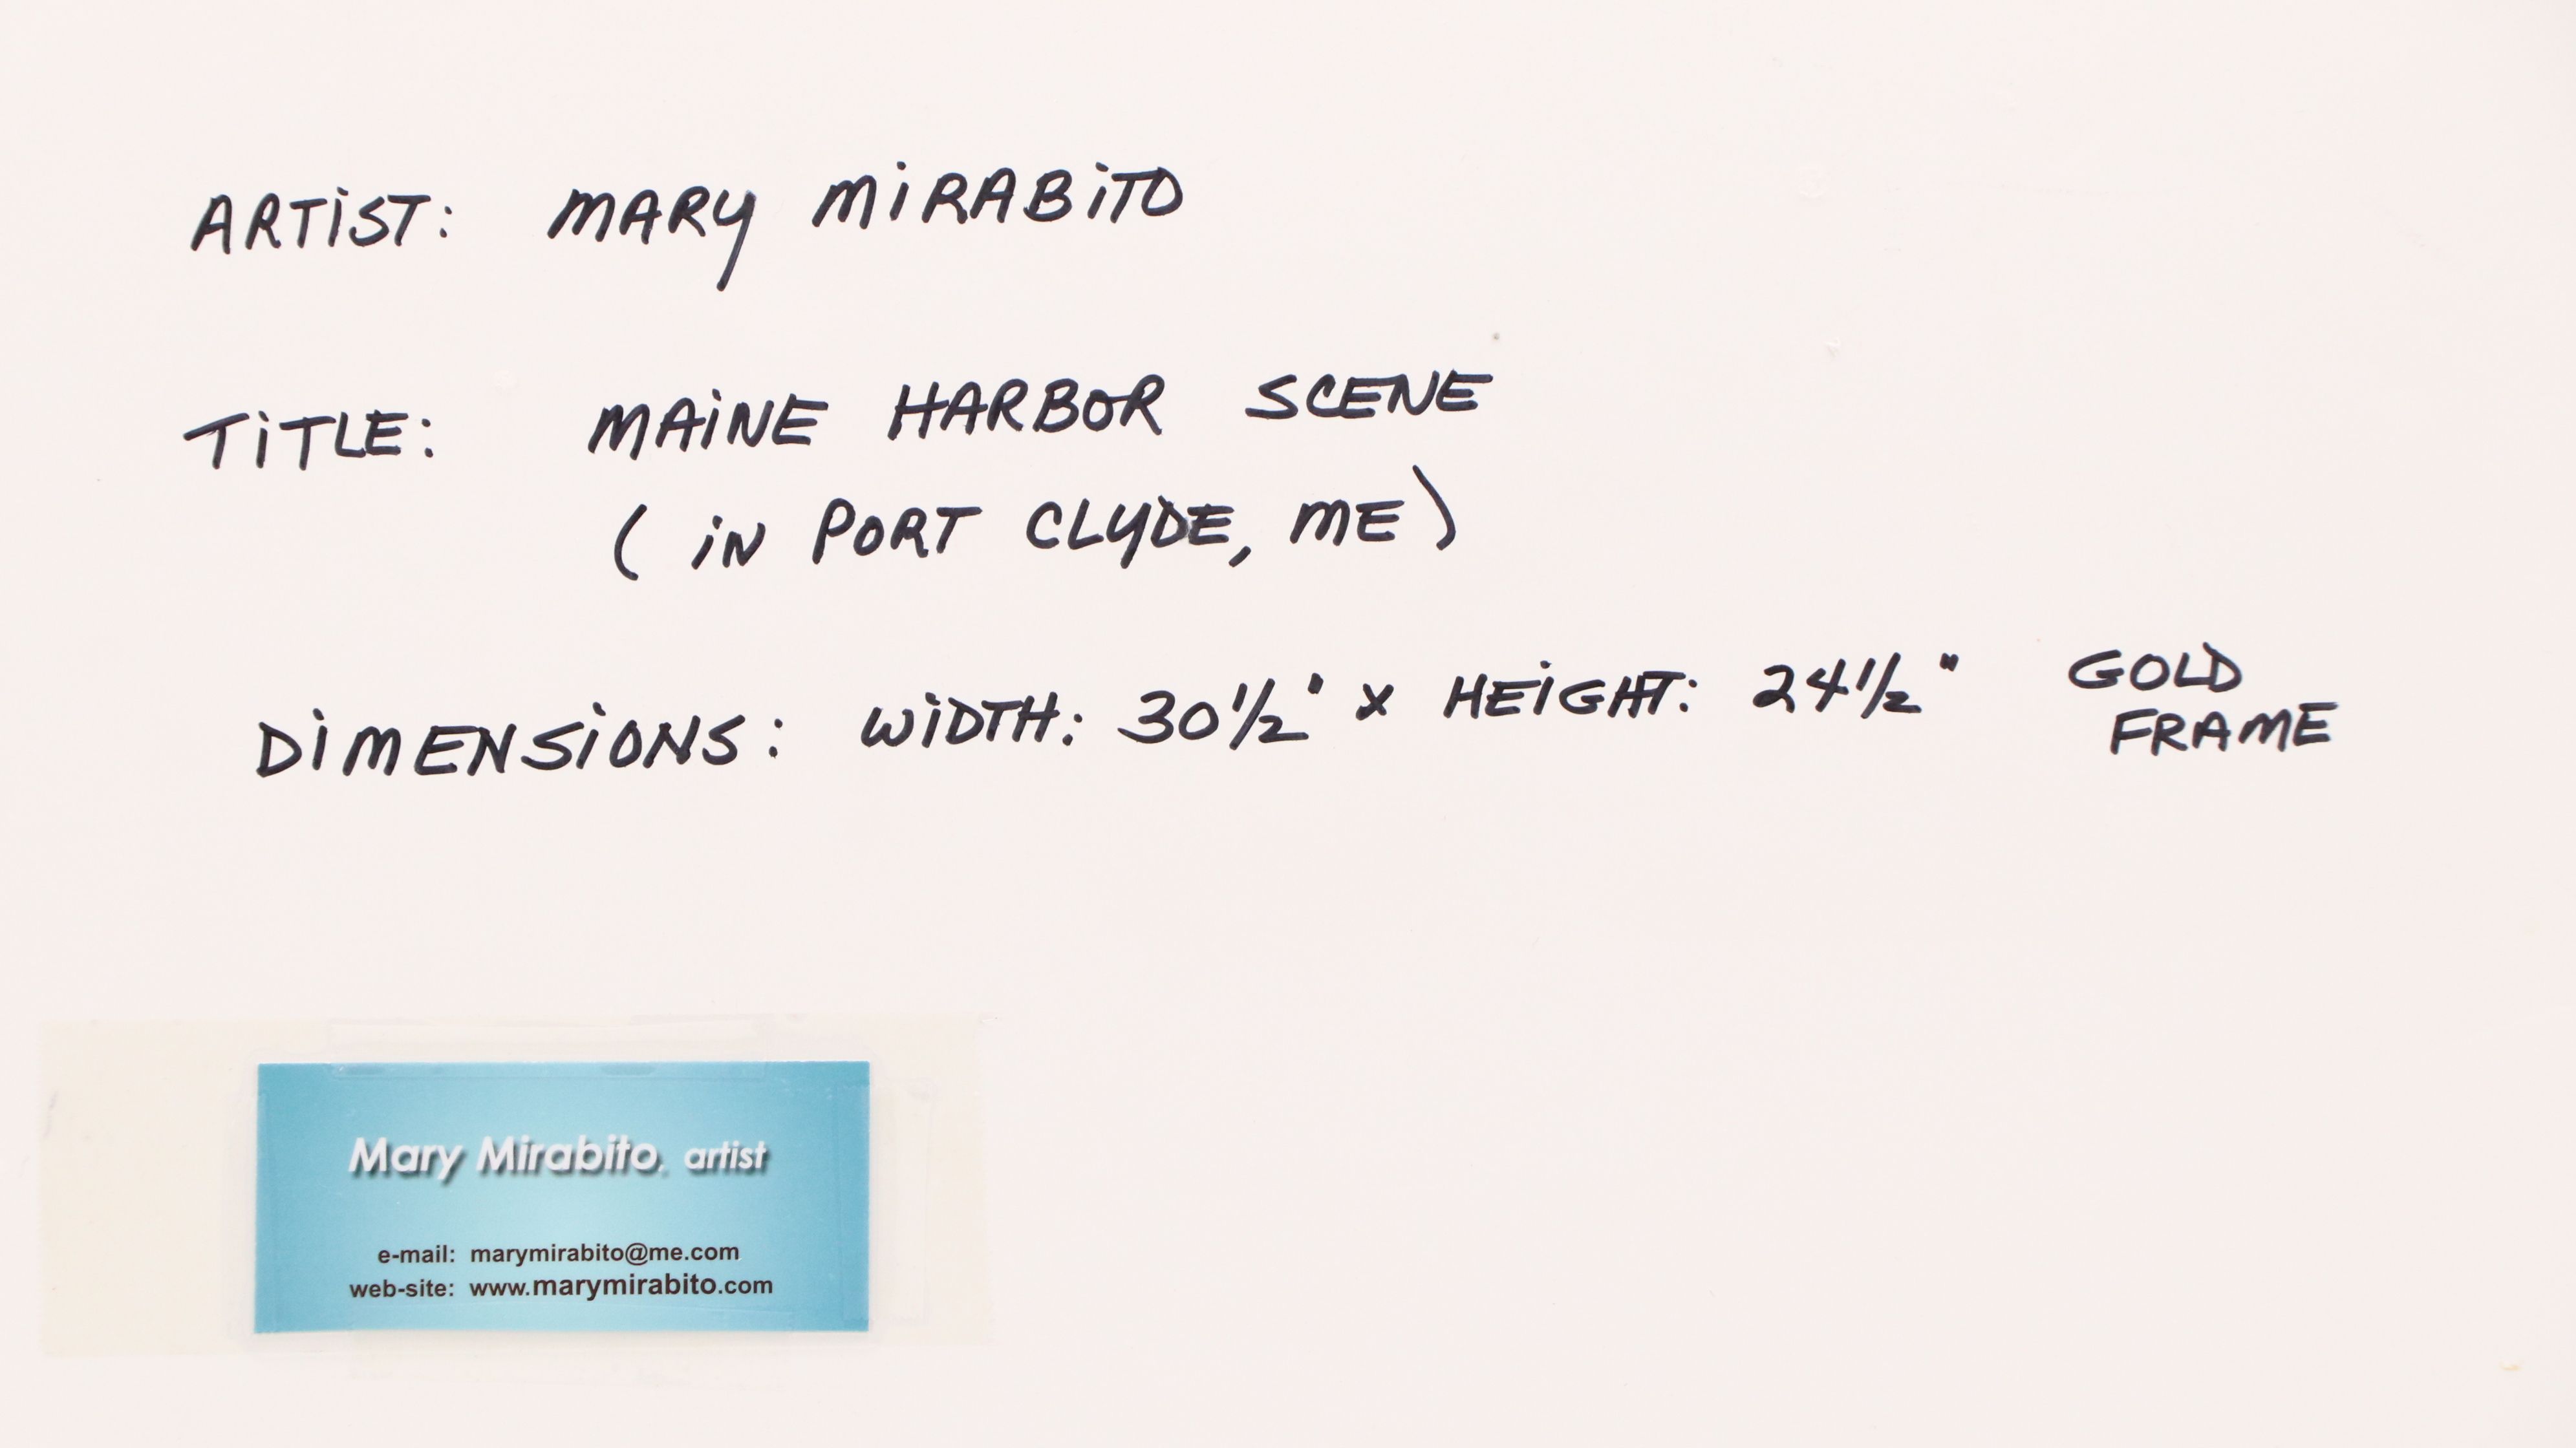 ARTiST: MARY MiRABiTO
TiTLE: MAiNE HARBOR SCENE
( iN PORT CLYDE, ME )
DiMENSiONS: WiDTH: 30 1/2" x HEiGHT: 24 1/2" GOLD
FRAME
Mary Mirabito, artist
e-mail: marymirabito@me.com
web-site: www.marymirabito.com